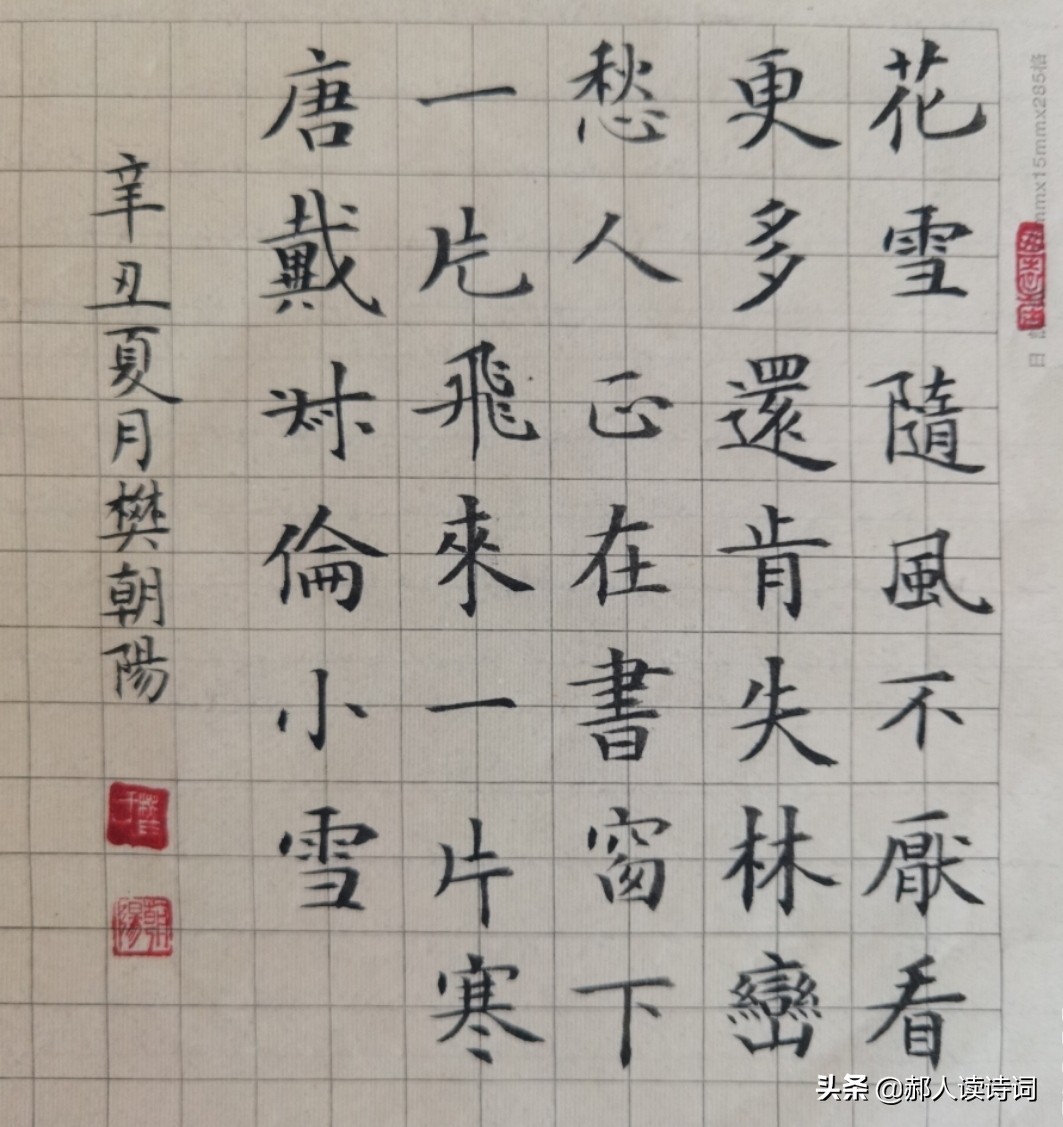 花雪隨風不厭看
更多還肯失林巒
愁人正在書窗下
一片飛來一片寒
唐戴叔倫小雪
辛丑夏月樊朝陽
朝陽
头条 @郝人读诗词